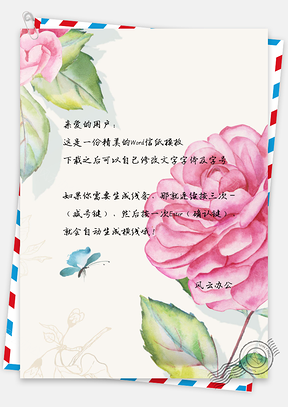 亲爱的用户：
这是一份精美的Word信纸模板
下载之后可以自己修改文字字体及字号
如果你需要生成线条，那就连续按三次-
（减号键），然后按一次Enter（确认键），
就会自动生成横线哦！
风云办公